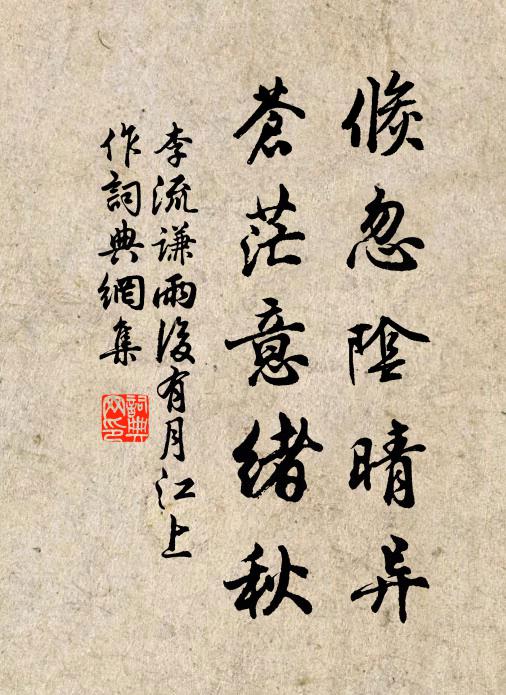 倐忽陰晴异
蒼茫意緒秋
李流谦雨後有月江上
作詞典網集
詞典网印